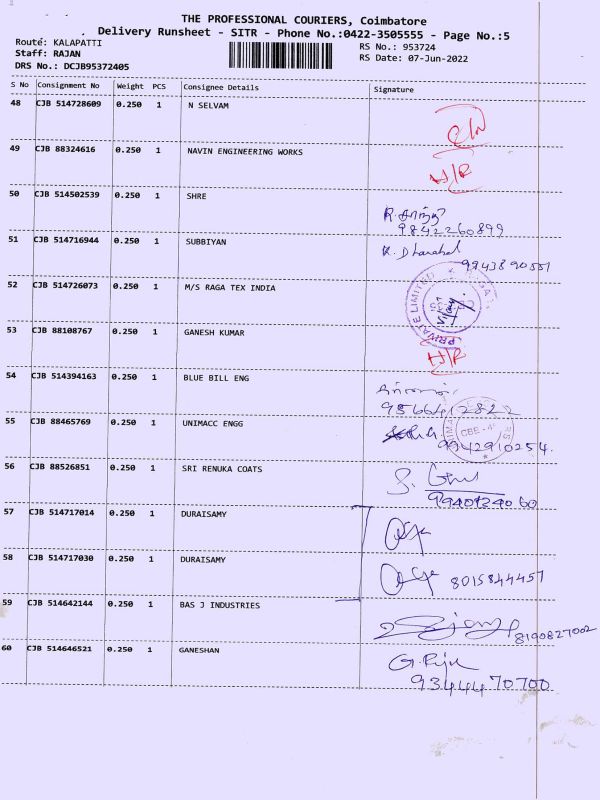 THE PROFESSIONAL COURIERS, Coimbatore
Delivery Runsheet - SITR - Phone No.:0422-3505555 - Page No.:5
Route: KALAPATTI
RS No.: 953724
Staff: RAJAN
RS Date: 07-Jun-2022
DRS No.: DCJB95372405
S No Consignment No Weight PCS Consignee Details Signature
48 CJB 514728609 0.250 1 N SELVAM
49 CJB 88324616 0.250 1 NAVIN ENGINEERING WORKS
H/R
50 CJB 514502539 0.250 1 SHRE
9842260899
51 CJB 514716944 0.250 1 SUBBIYAN
9943890551
52 CJB 514726073 0.250 1 M/S RAGA TEX INDIA
PRIVATE LIMITED
53 CJB 88108767 0.250 1 GANESH KUMAR
H/R
54 CJB 514394163 0.250 1 BLUE BILL ENG
9566412822
55 CJB 88465769 0.250 1 UNIMACC ENGG
9942910254.
56 CJB 88526851 0.250 1 SRI RENUKA COATS
57 CJB 514717014 0.250 1 DURAISAMY
58 CJB 514717030 0.250 1 DURAISAMY
8015844457
59 CJB 514642144 0.250 1 BAS J INDUSTRIES
8190827002
60 CJB 514646521 0.250 1 GANESHAN
9344470700